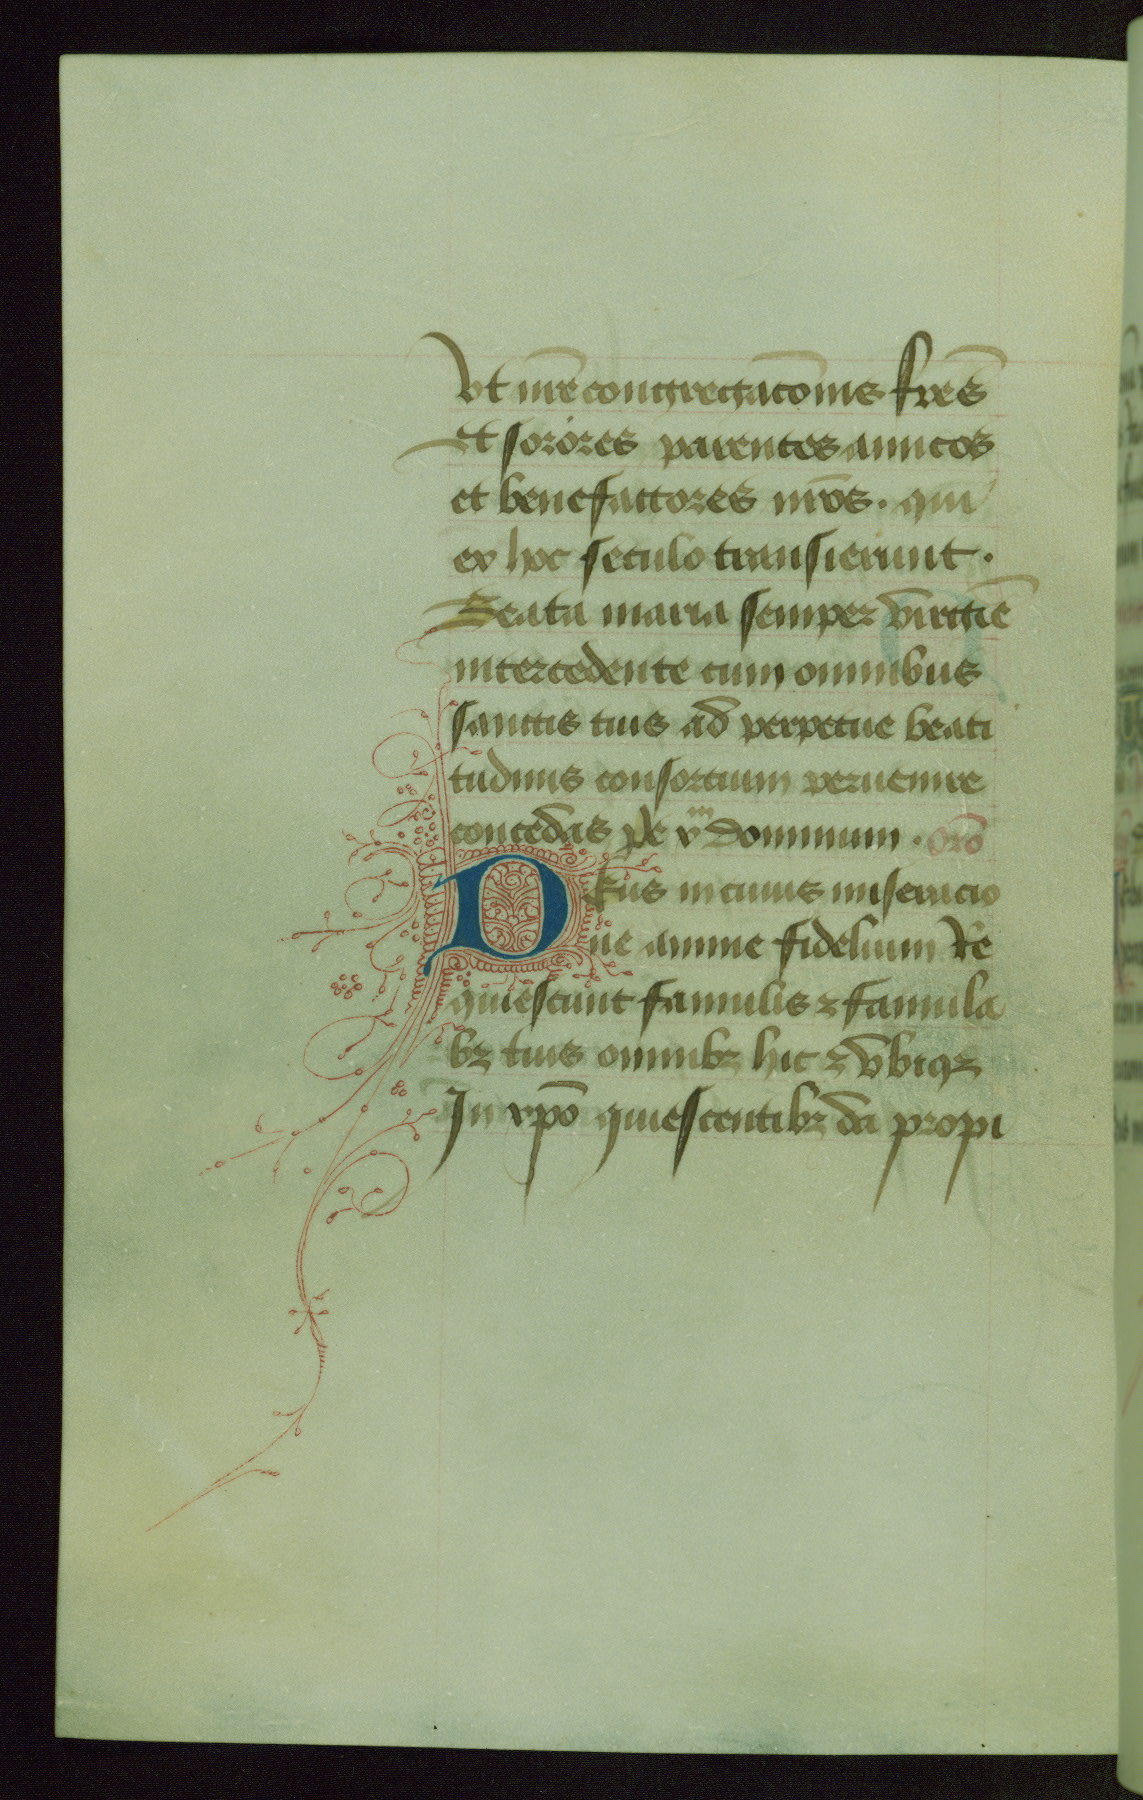 Vt nr̄e congregac̄onis fr̄es
Et sorores parentes amicos
et benefactores nr̄os · qui
ex hoc seculo transierunt ·
Beata maria semper v̄irgīe
intercedente cum omnibus
sanctis tuis ad perpetue beati
tudinis consortium peruenire
concedas p̄ e x̄ dominum · oro̅
Deus in cuius miseracio
ne anime fidelium Re
quiescunt famulis ⁊ famula
bꝫ tuis omnibꝫ hic ⁊ vbiqꝫ
In xp̄o quiescentibꝫ da propi